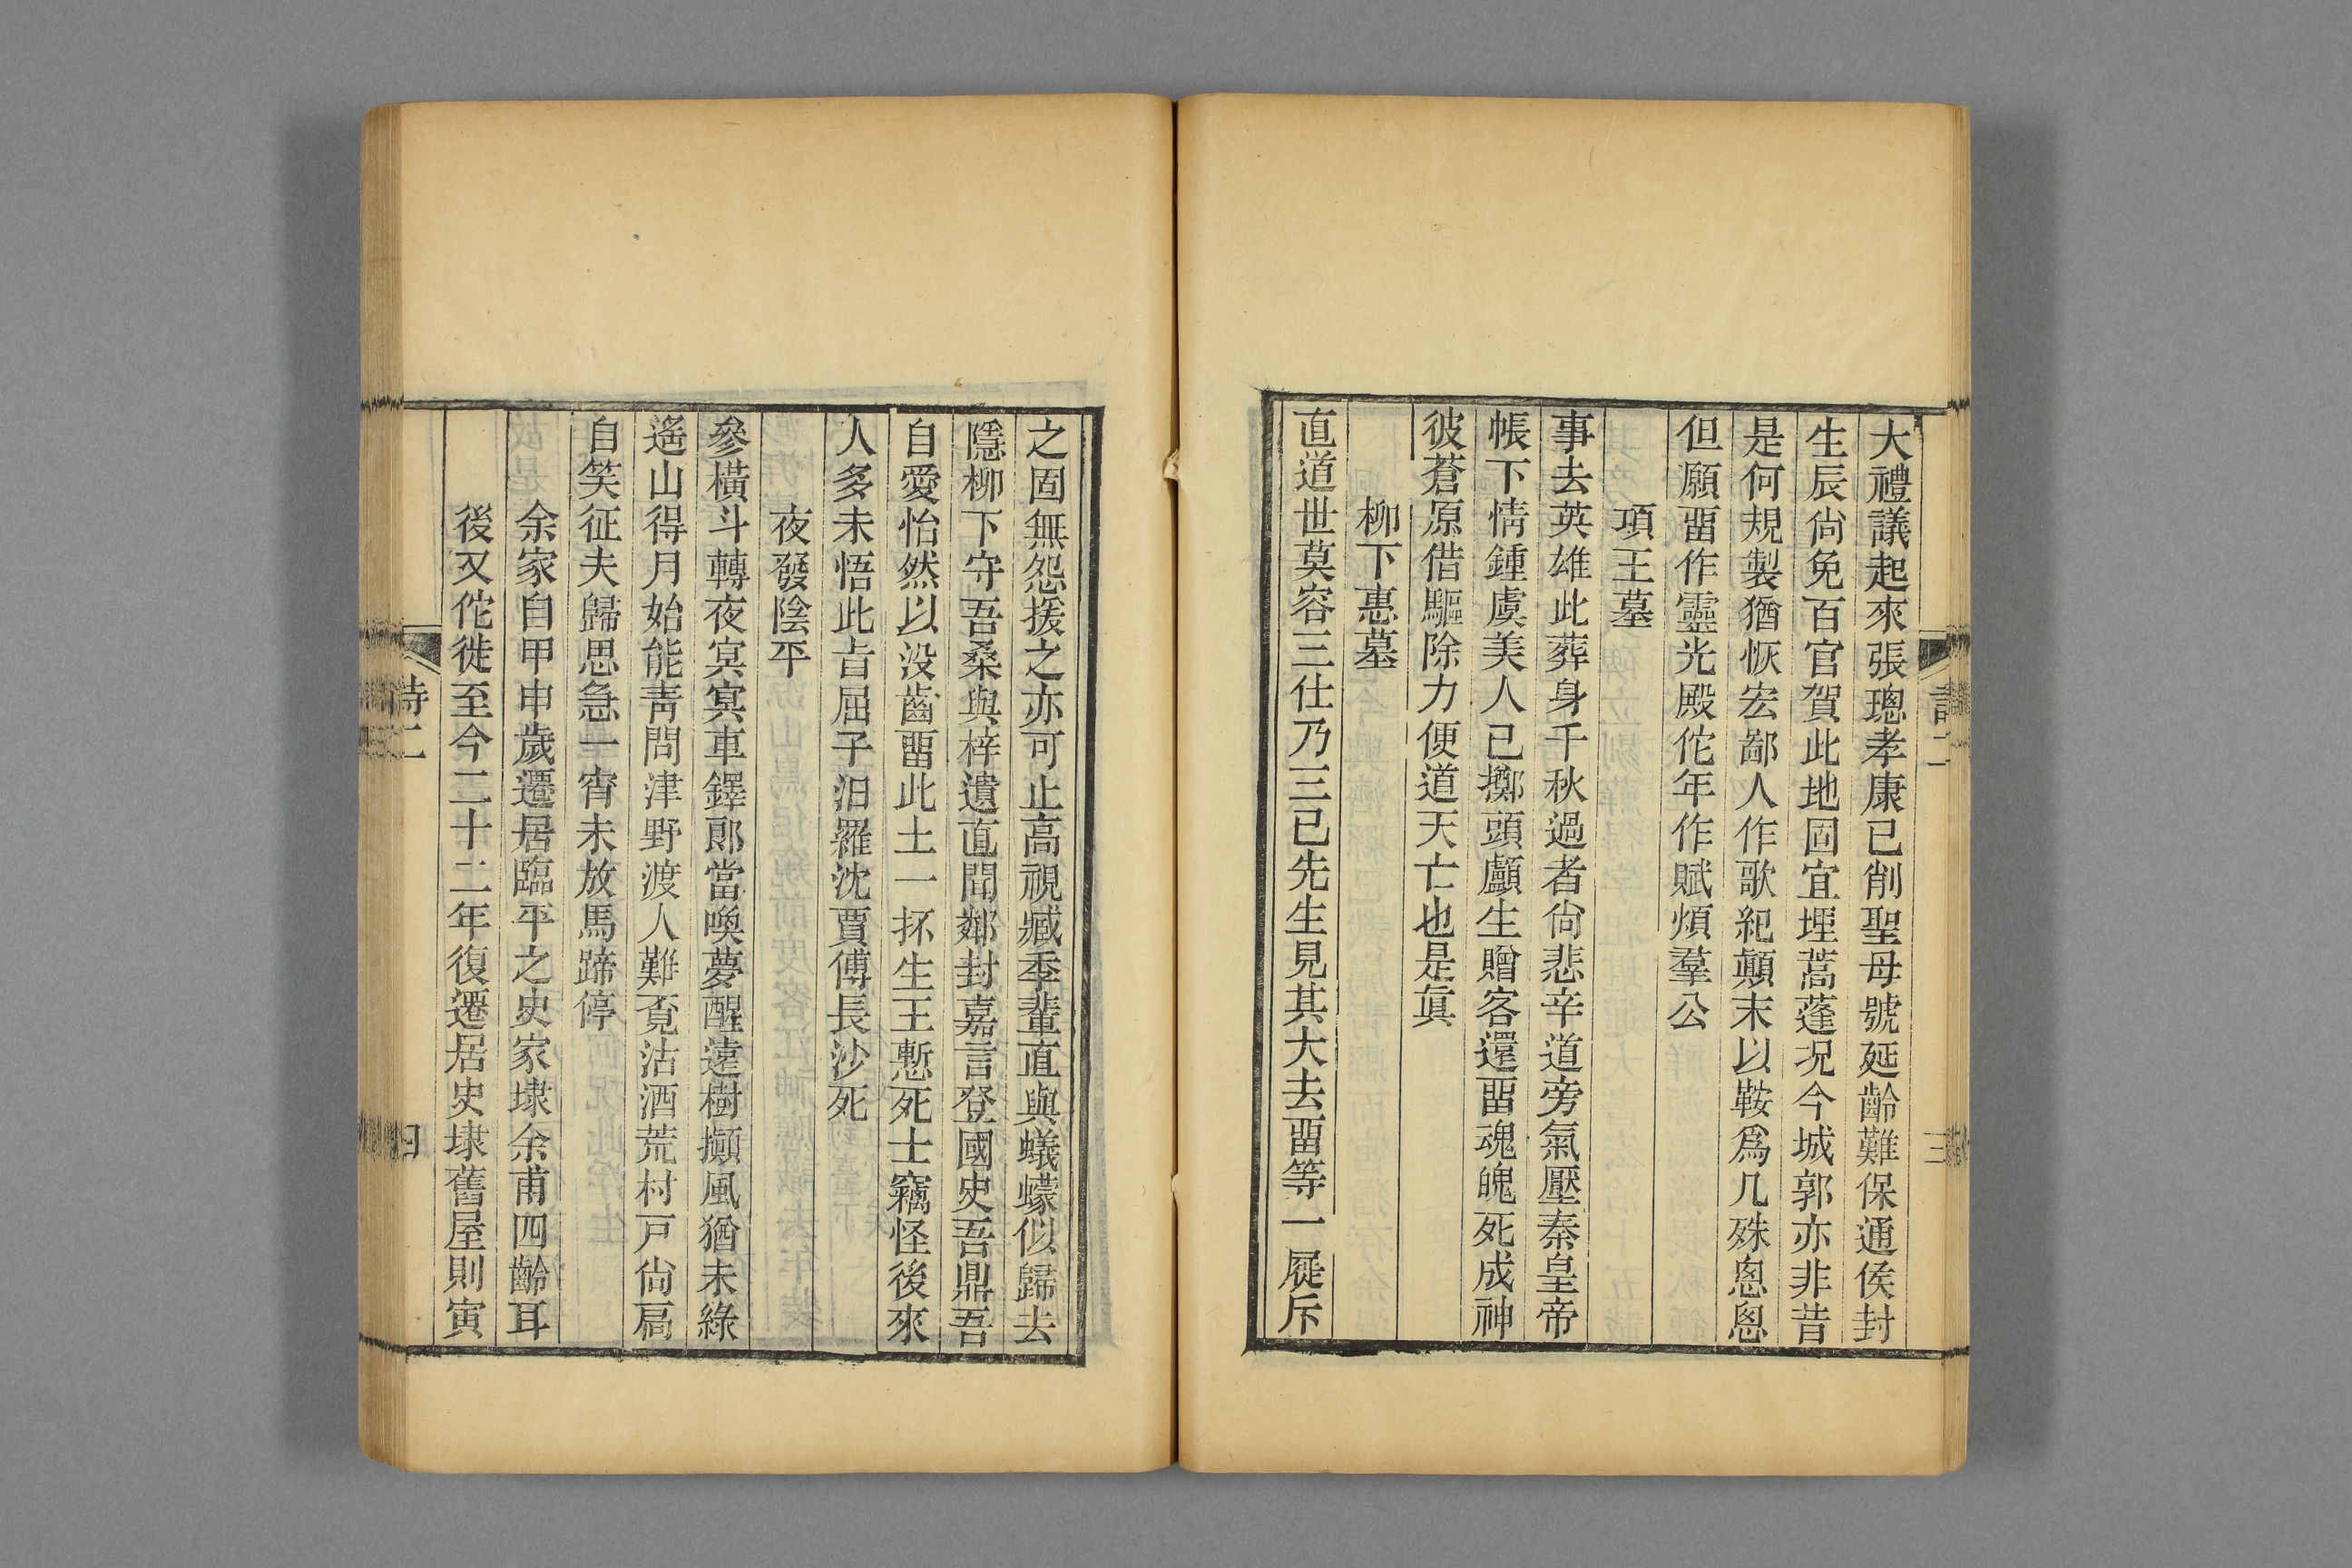 大禮議起來張璁孝康已削聖母號延齡難保通侯封
生辰尙免百官賀此地固宜埋蒿蓬况今城郭亦非昔
是何規製猶恢宏鄙人作歌紀顚末以鞍爲几殊悤悤
但願畱作靈光殿佗年作賦煩羣公
項王墓
事去英雄此葬身千秋過者尙悲辛道旁氣壓秦皇帝
帳下情鍾虞美人已擲頭顱生贈客還畱魂魄死成神
彼蒼原借驅除力便道天亡也是眞
柳下惠墓
直道世莫容三仕乃三已先生見其大去畱等一屣斥
詩二
三
之固無怨援之亦可止高視臧季輩直與蟻蠓似歸去
隱柳下守吾桑與梓遺直聞鄰封嘉言登國史吾鼎吾
自愛怡然以没齒畱此土一抔生王慙死士竊怪後來
人多未悟此㫖屈子汨羅沈賈傅長沙死
夜發陰平
參橫斗轉夜冥冥車鐸郞當喚夢醒遠樹攧風猶未綠
遙山得月始能靑問津野渡人難覔沽酒荒村戸尙扃
自笑征夫歸思急一宵未放馬蹄停
余家自甲申歲遷居臨平之史家埭余甫四齡耳
後又佗徙至今二十二年復遷居史埭舊屋則寅
詩二
四